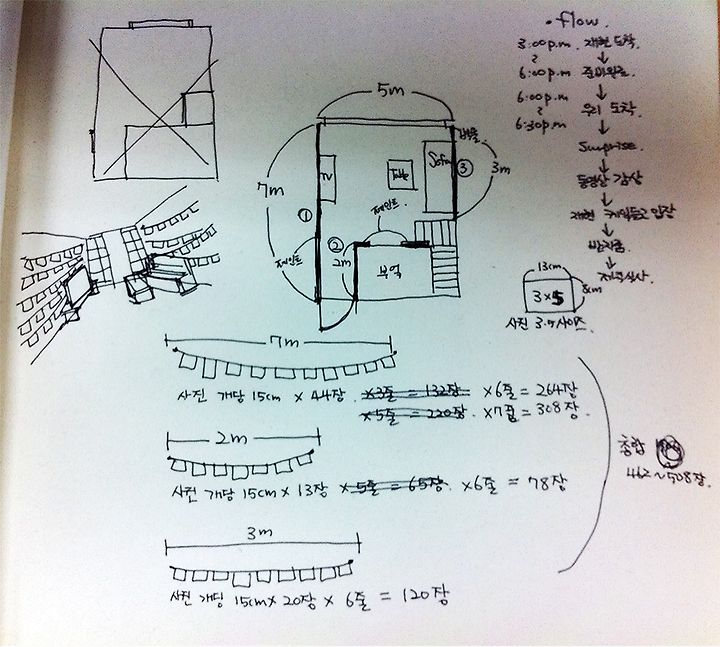 • flow.
3:00 p.m. 재현 도착
6:00 p.m 준비완료
6:00 p.m
6:30 p.m
우리 도착
Surprise.
동영상 감상
재현 케익들고 입장
반지줌.
저녁식사
5m
7m
TV
Table
Sofa
③
3m
①
②
2m
페인트
페인트
부엌
13cm
3×5
8cm
사진 3·5사이즈.
7m
사진 개당 15cm × 44장. ×3줄 = 132장 ×6줄 = 264장
×5줄 = 220장. ×7줄 = 308장.
2m
사진 개당 15cm × 13장 ×5줄 = 65장. ×6줄 = 78장
3m
사진 개당 15cm × 20장 × 6줄 = 120장
총합
462~508장.